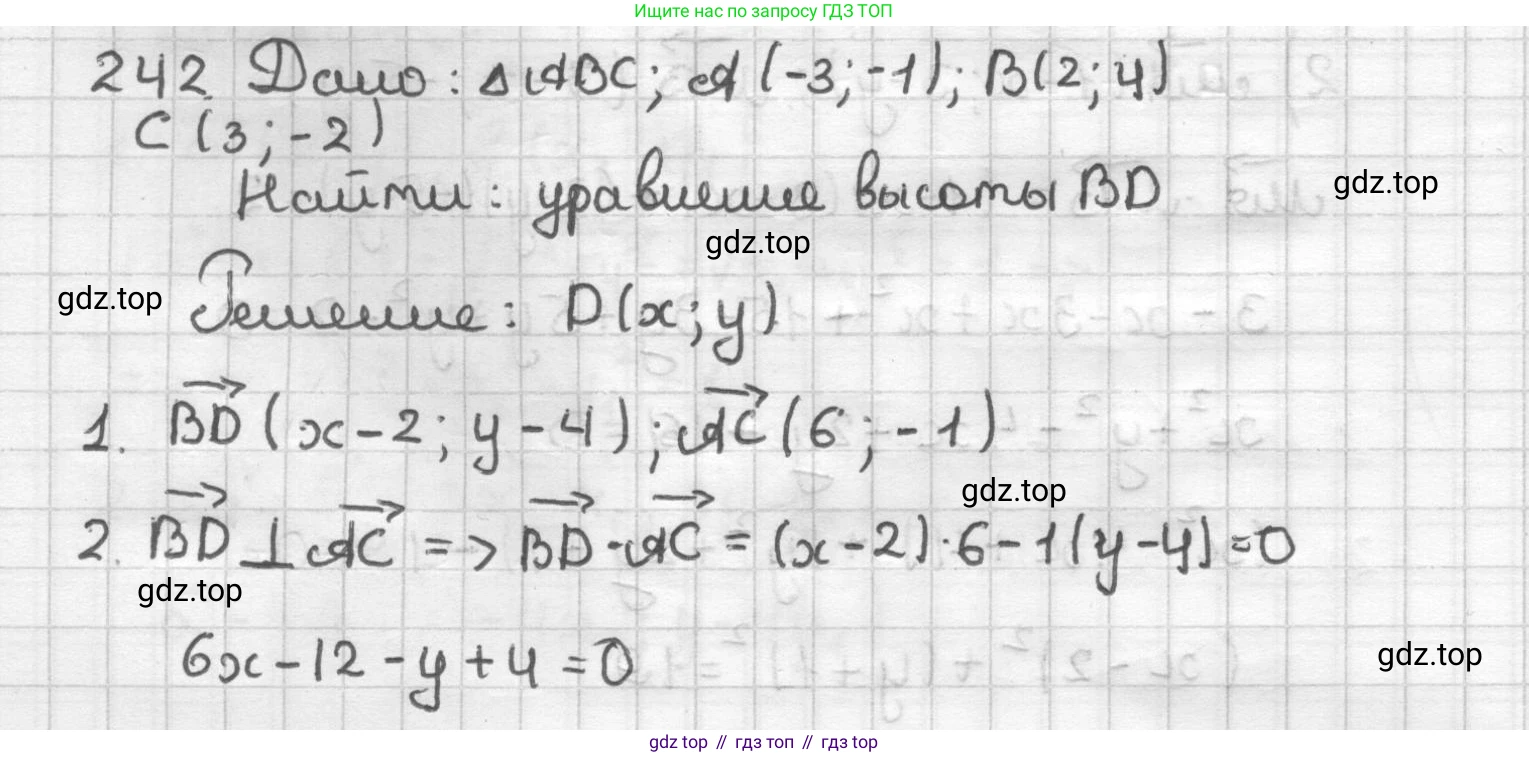 Ищите нас по запросу ГДЗ ТОП
242. Дано: △ABC; A(-3; -1); B(2; 4)
C(3; -2)
Найти: уравнение высоты BD
gdz.top
gdz.top
gdz.top
Решение: D(x; y)
1. BD⃗(x-2; y-4); AC⃗(6; -1)
gdz.top
2. BD⃗ ⊥ AC⃗ => BD⃗·AC⃗ = (x-2)·6-1(y-4)=0
gdz.top
6x-12-y+4=0
gdz.top
gdz top // гдз топ // гдз top